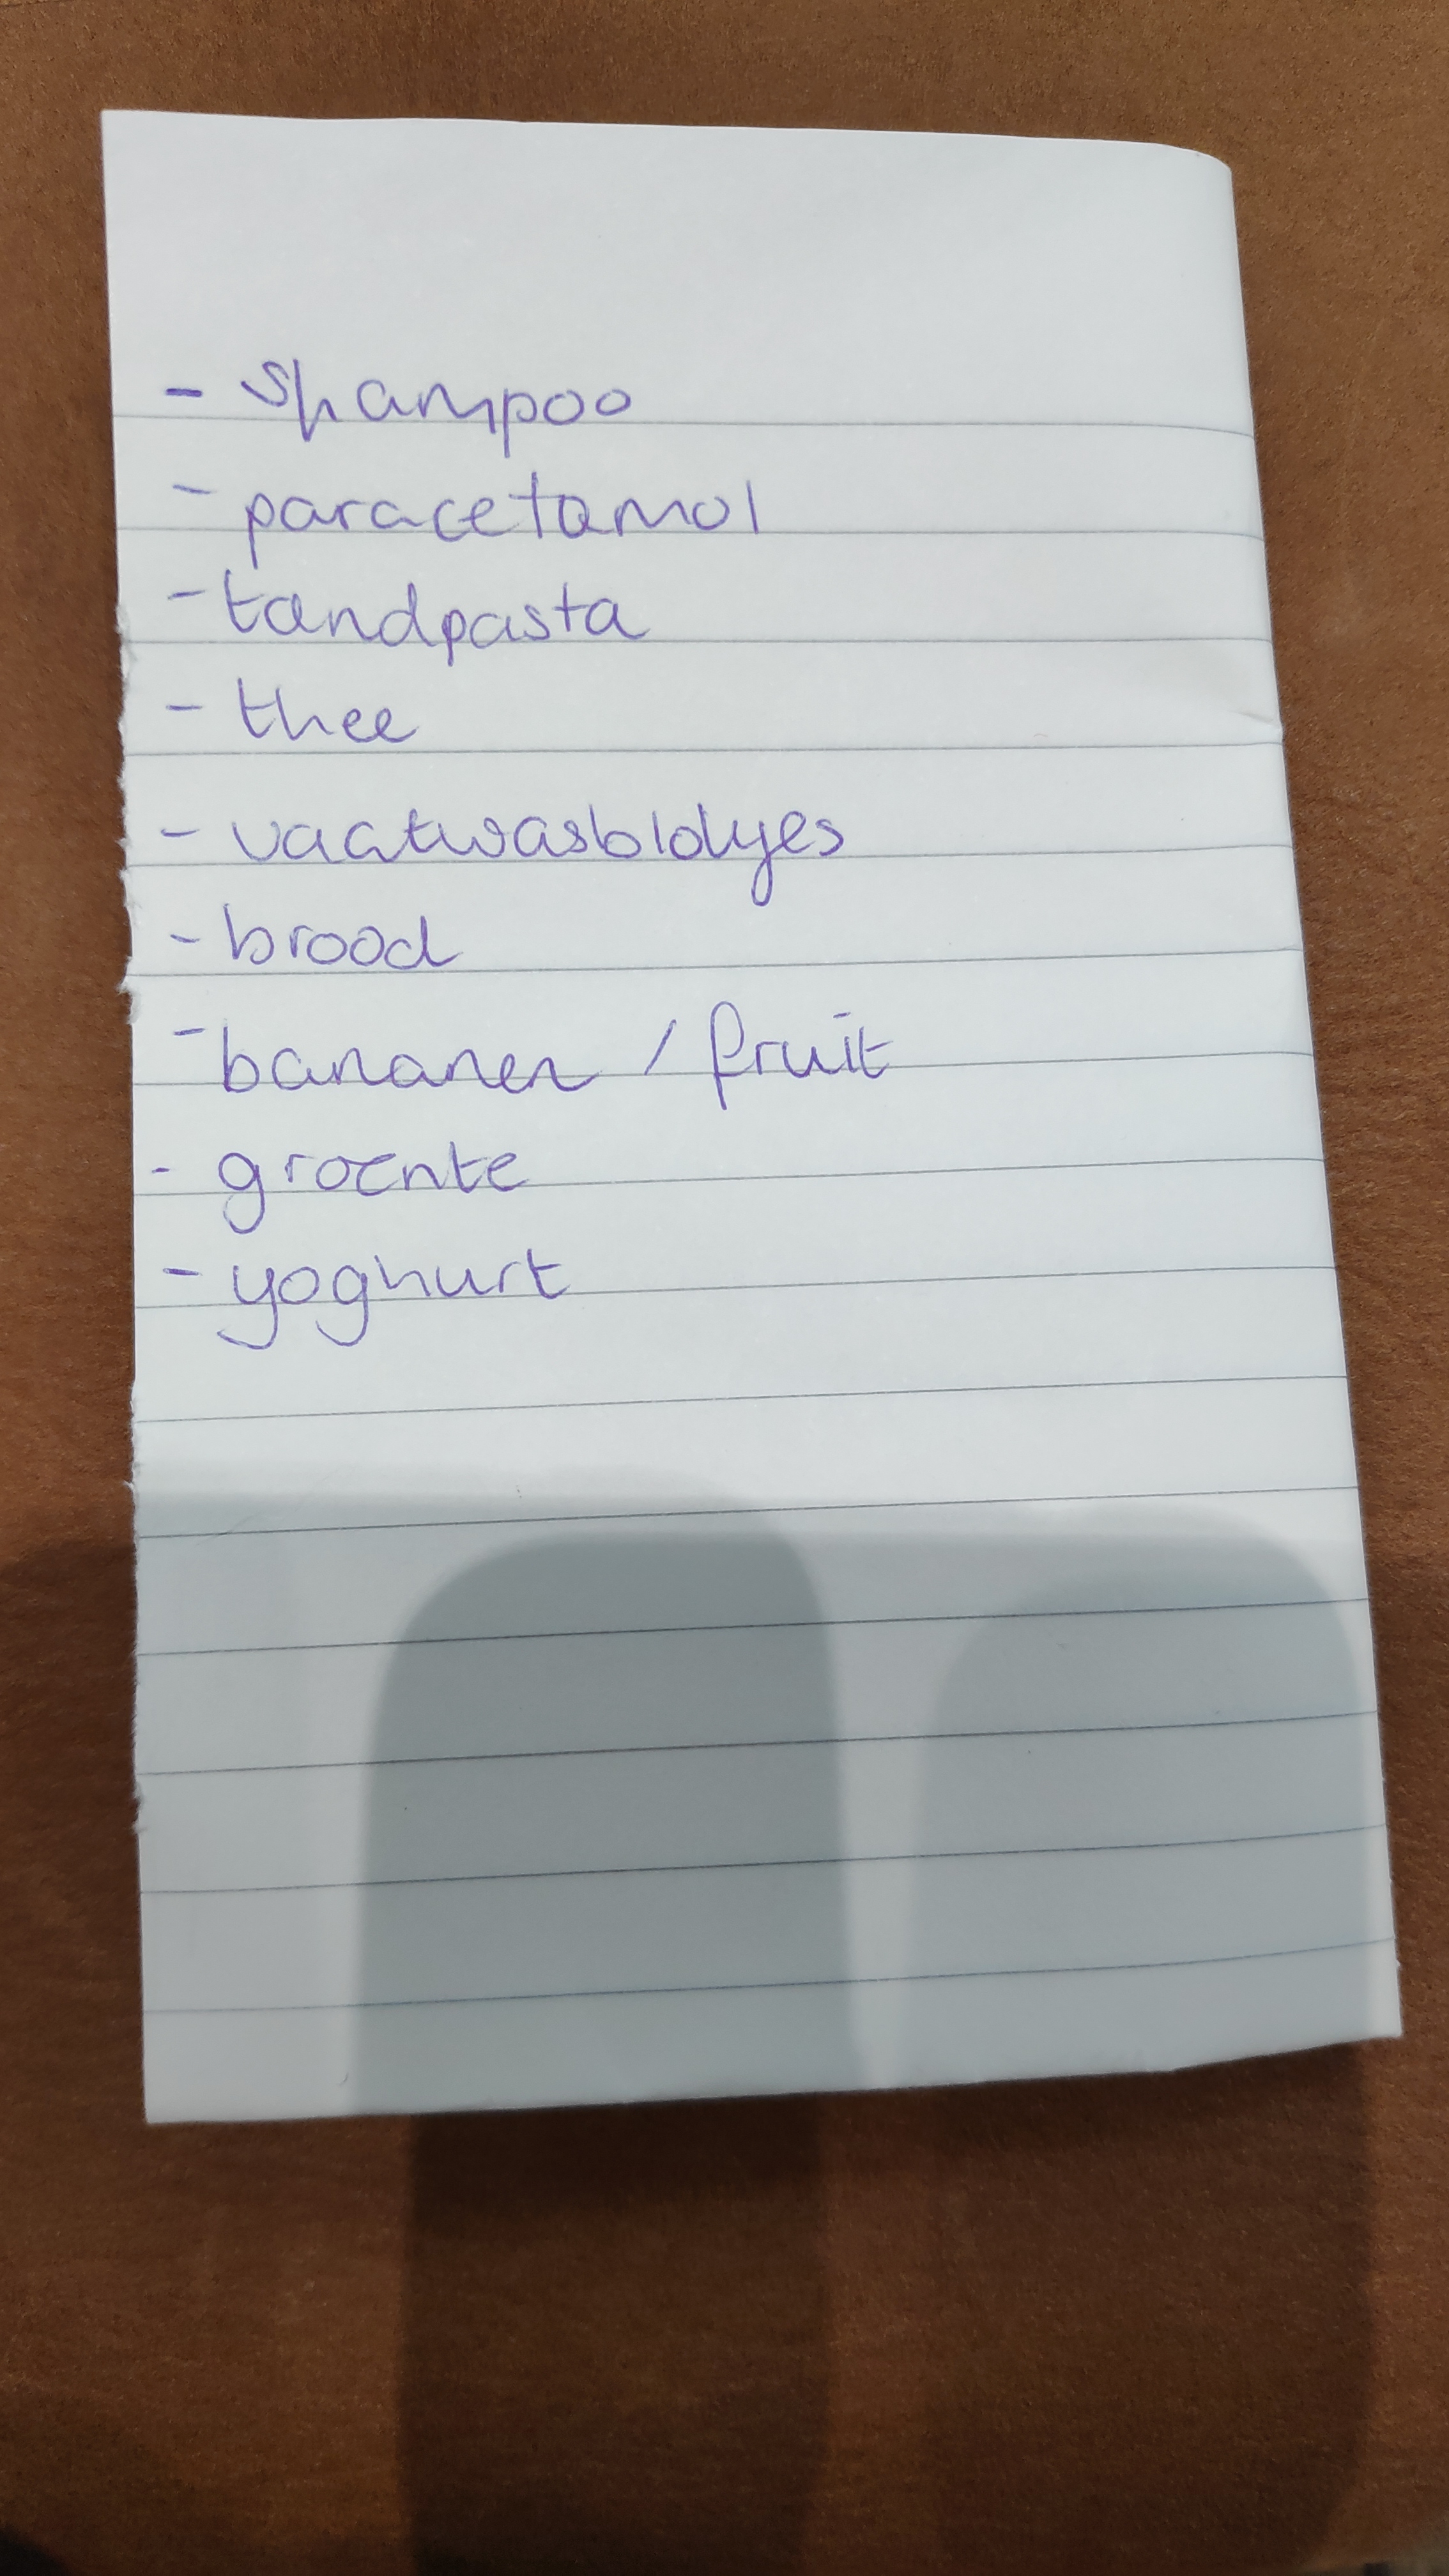 - shampoo
- paracetamol
- tandpasta
- thee
- vaatwasblokjes
- brood
- bananen / fruit
- groente
- yoghurt